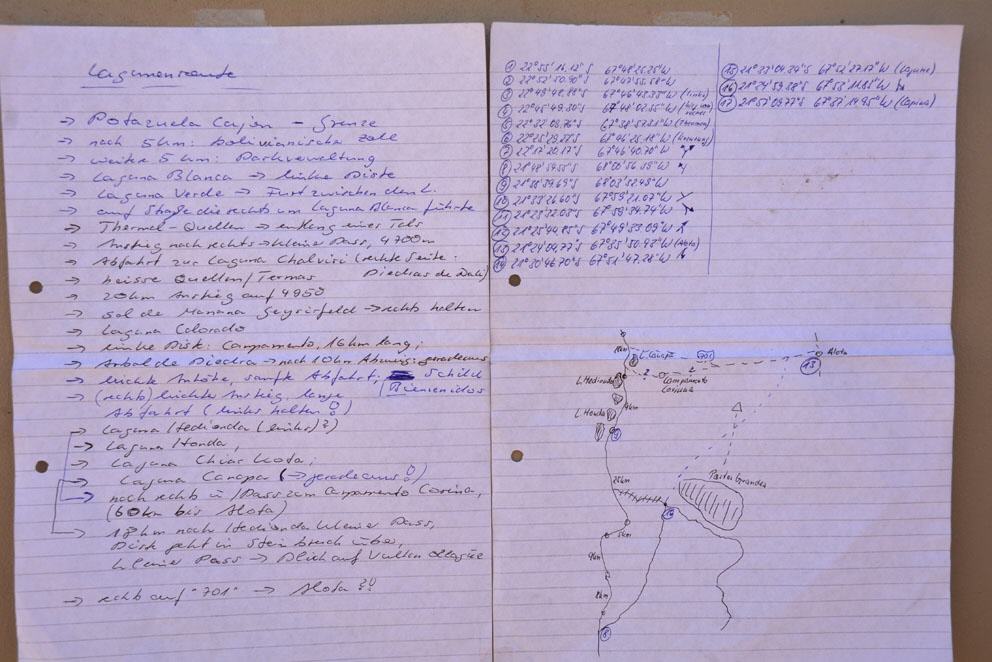 Lagunenroute
→ Potazuela Cajon - Grenze
→ nach 5km: bolivianische Zoll
→ weiter 5 km: Parkverwaltung
→ Laguna Blanca → linke Piste
→ Laguna Verde → Furt zwischen den L.
→ auf Straße die rechts um Laguna Blanca führte
→ Thermal-Quellen → entlang eines Tals
→ Anstieg nach rechts → kleiner Pass, 4700m
→ Abfahrt zur Laguna Chalviri (rechte Seite:
Piedras de Dali)
→ heisse Quellen/Termas
→ 20km Anstieg auf 4950
→ Sol de Manana Geysirfeld → rechts halten
→ Laguna Colorado
→ linke Pisk: Campamento, 16km lang;
→ Arbol de Piedra → nach 10km Abzweig: geradeaus
→ leichte Anhöhe, sanfte Abfahrt, Schild
(Bienvenidos
→ (rechts) leichter Anstieg, lange
Abfahrt (links halten!)
→ Laguna Hedionda (links)?)
→ Laguna Honda,
→ Laguna Chiar Kota,
→ Laguna Canapa (→ geradeaus!)
→ nach rechts in/Pass zum Campamento Corina,
(60km bis Alota)
→ 18km nach Hedionda kleiner Pass,
Pisk geht in Steinbruch über,
kleiner Pass → Blick auf Vulkan
→ rechts auf "701" → Alota ?!
① 22°55'16.12"S 67°48'25.25"W
② 22°52'50.90"S 67°47'55.58"W
③ 22°49'48.88"S 67°46'43.33"W (links)
④ 22°45'49.80"S 67°48'02.55"W
⑤ 22°32'08.76"S 67°38'57.51"W (Thermen)
⑥ 22°25'29.27"S 67°46'25.18"W (Kreuzung)
⑦ 22°17'20.17"S 67°46'40.70"W
⑧ 21°48'54.55"S 68°00'56.55"W
⑨ 21°38'39.69"S 68°03'52.49"W
⑩ 21°33'26.60"S 67°59'21.07"W
⑪ 21°23'32.03"S 67°59'34.74"W
⑫ 21°25'44.85"S 67°49'33.09"W
⑬ 21°24'04.77"S 67°35'50.93"W (Alota)
⑭ 21°30'46.70"S 67°51'47.28"W
⑮ 21°33'04.24"S 67°52'27.17"W (Laguna)
⑯ 21°24'59.38"S 67°53'11.85"W
⑰ 21°57'09.77"S 67°37'14.95"W
L. Canapa
701
Alota
⑬
L. Hedionda
2
2
Campamento
Corina
L. Honda
4km
⑨
Pastos Grandes
⑭
5km
9km
8km
⑧